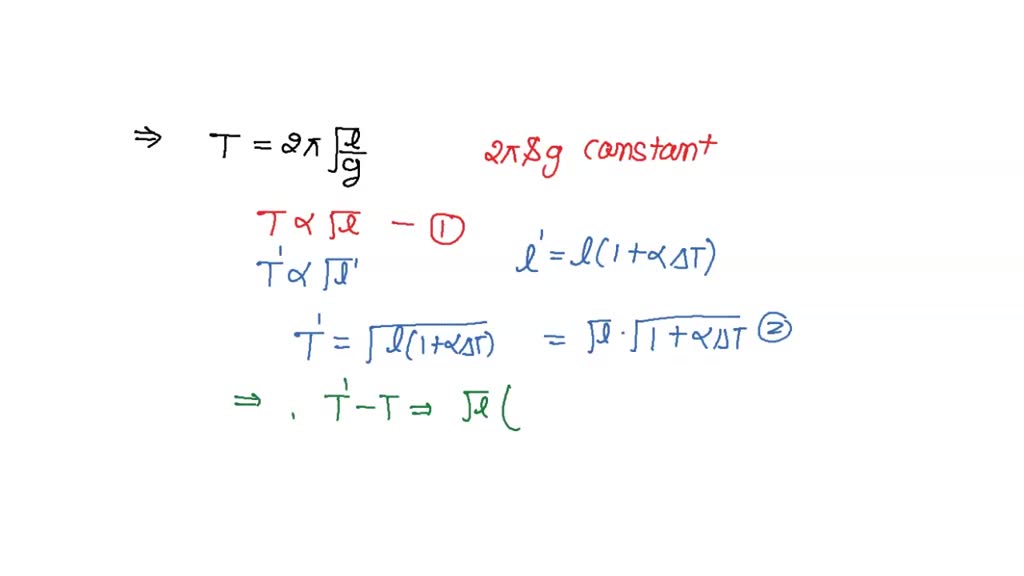 ⇒ T = 2π√(l/g) 2π & g constant
T ∝ √l — ①
T' ∝ √l' l' = l(1+αΔT)
T' = √(l(1+αΔT)) = √l · √(1+αΔT) ②
⇒ . T' − T ⇒ √l (